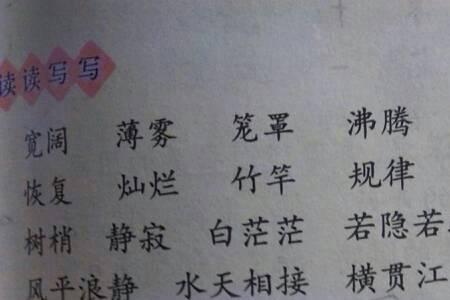 读读写写
宽阔 薄雾 笼罩 沸腾
恢复 灿烂 竹竿 规律
树梢 静寂 白茫茫 若隐若
风平浪静 水天相接 横贯江